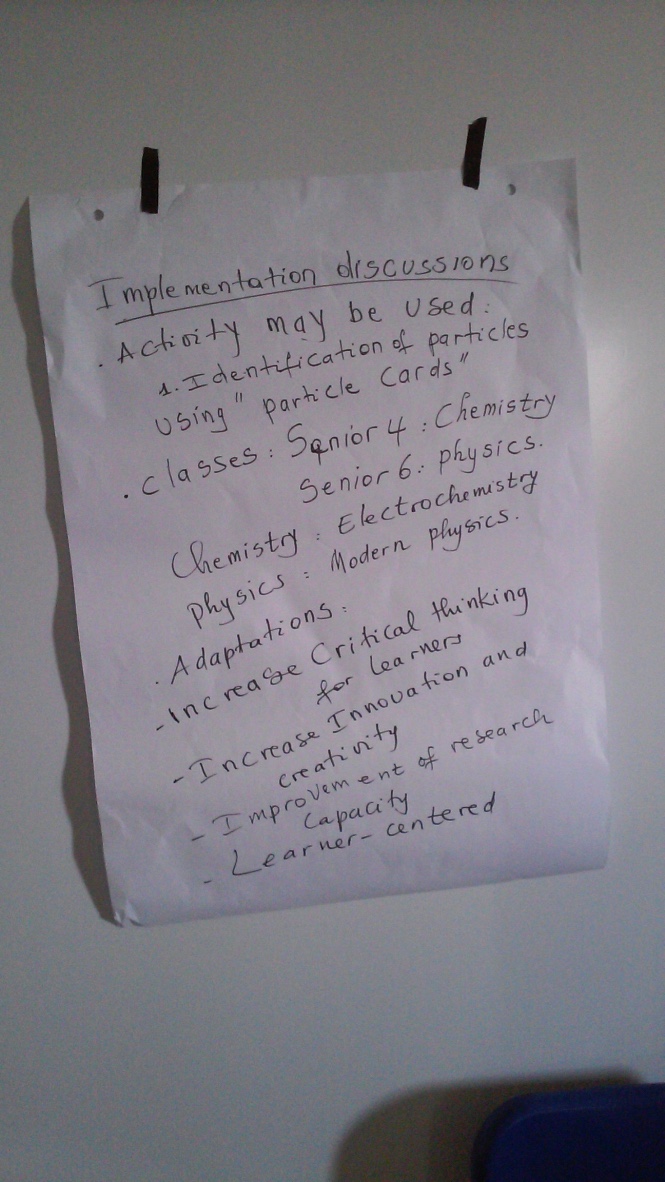 Implementation discussions
. Activity may be used:
1. Identification of particles
using " particle cards"
. Classes : Senior 4 : Chemistry
Senior 6: physics.
Chemistry : Electrochemistry
physics : Modern physics.
. Adaptations :
- Increase Critical thinking
for Learners
- Increase Innovation and
creativity
- Improvement of research
capacity
- Learner-centered